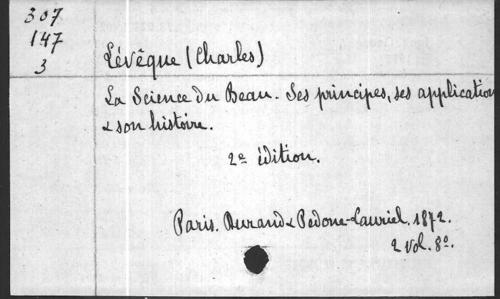 307
147
3
Lévêque (Charles)
La Science du Beau. Ses principes, ses application
& son histoire.
2e édition.
Paris. Durand & Pedone-Lauriel. 1872.
2 vol. 8o.